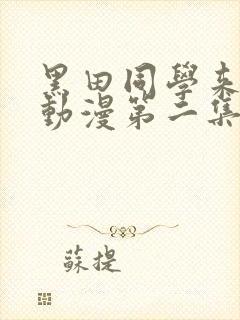 黑田同學来
動漫第二集
蘇提